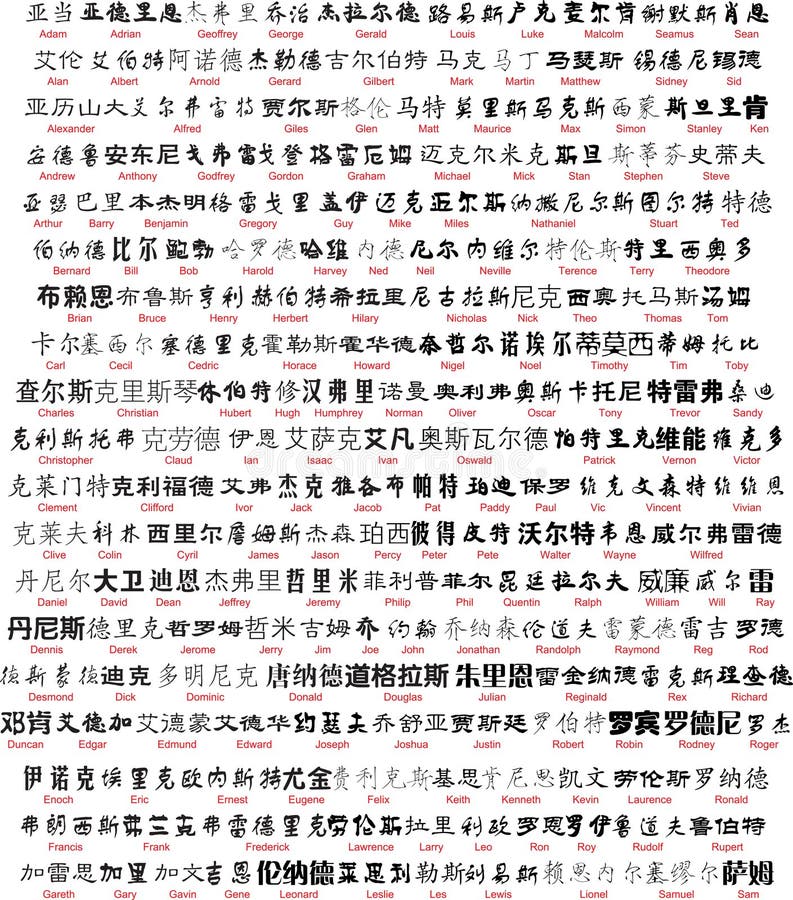 亚当 亚德里恩 杰弗里 乔治 杰拉尔德 路易斯 卢克 麦尔肯 谢默斯 肖恩
Adam Adrian Geoffrey George Gerald Louis Luke Malcolm Seamus Sean
艾伦 艾伯特 阿诺德 杰勒德 吉尔伯特 马克 马丁 马瑟斯 锡德尼 锡德
Alan Albert Arnold Gerard Gilbert Mark Martin Matthew Sidney Sid
亚历山大 艾尔弗雷特 贾尔斯 格伦 马特 莫里斯 马克斯 西蒙 斯旦里 肯
Alexander Alfred Giles Glen Matt Maurice Max Simon Stanley Ken
安德鲁 安东尼 戈弗雷 戈登 格雷厄姆 迈克尔 米克 斯旦 斯蒂芬 史蒂夫
Andrew Anthony Godfrey Gordon Graham Michael Mick Stan Stephen Steve
亚瑟 巴里 本杰明 格雷戈里 盖伊 迈克 迈尔斯 纳撒尼尔 斯图尔特 特德
Arthur Barry Benjamin Gregory Guy Mike Miles Nathaniel Stuart Ted
伯纳德 比尔 鲍勃 哈罗德 哈维 内德 尼尔 内维尔 特伦斯 特里 西奥多
Bernard Bill Bob Harold Harvey Ned Neil Neville Terence Terry Theodore
布赖恩 布鲁斯 亨利 赫伯特 希拉里 尼古拉斯 尼克 西奥 托马斯 汤姆
Brian Bruce Henry Herbert Hilary Nicholas Nick Theo Thomas Tom
卡尔 塞西尔 塞德里克 霍勒斯 霍华德 奈哲尔 诺埃尔 蒂莫西 蒂姆 托比
Carl Cecil Cedric Horace Howard Nigel Noel Timothy Tim Toby
查尔斯 克里斯琴 休伯特 修 汉弗里 诺曼 奥利弗 奥斯卡 托尼 特雷弗 桑迪
Charles Christian Hubert Hugh Humphrey Norman Oliver Oscar Tony Trevor Sandy
克利斯托弗 克劳德 伊恩 艾萨克 艾凡 奥斯瓦尔德 帕特里克 维能 维克多
Christopher Claud Ian Isaac Ivan Oswald Patrick Vernon Victor
克莱门特 克利福德 艾弗 杰克 雅各布 帕特 珀迪 保罗 维克 文森特 维维恩
Clement Clifford Ivor Jack Jacob Pat Paddy Paul Vic Vincent Vivian
克莱夫 科林 西里尔 詹姆斯 杰森 珀西 彼得 皮特 沃尔特 韦恩 威尔弗雷德
Clive Colin Cyril James Jason Percy Peter Pete Walter Wayne Wilfred
丹尼尔 大卫 迪恩 杰弗里 哲里米 菲利普 菲尔 昆廷 拉尔夫 威廉 威尔 雷
Daniel David Dean Jeffrey Jeremy Philip Phil Quentin Ralph William Will Ray
丹尼斯 德里克 哲罗姆 哲米 吉姆 乔 约翰 乔纳森 伦道夫 雷蒙德 雷吉 罗德
Dennis Derek Jerome Jerry Jim Joe John Jonathan Randolph Raymond Reg Rod
德斯蒙德 迪克 多明尼克 唐纳德 道格拉斯 朱里恩 雷金纳德 雷克斯 理查德
Desmond Dick Dominic Donald Douglas Julian Reginald Rex Richard
邓肯 艾德加 艾德蒙 艾德华 约瑟夫 乔舒亚 贾斯廷 罗伯特 罗宾 罗德尼 罗杰
Duncan Edgar Edmund Edward Joseph Joshua Justin Robert Robin Rodney Roger
伊诺克 埃里克 欧内斯特 尤金 费利克斯 基思 肯尼思 凯文 劳伦斯 罗纳德
Enoch Eric Ernest Eugene Felix Keith Kenneth Kevin Laurence Ronald
弗朗西斯 弗兰克 弗雷德里克 劳伦斯 拉里 利欧 罗恩 罗伊 鲁道夫 鲁伯特
Francis Frank Frederick Lawrence Larry Leo Ron Roy Rudolf Rupert
加雷思 加里 加文 吉恩 伦纳德 莱思利 勒斯 刘易斯 赖恩内尔 塞缪尔 萨姆
Gareth Gary Gavin Gene Leonard Leslie Les Lewis Lionel Samuel Sam